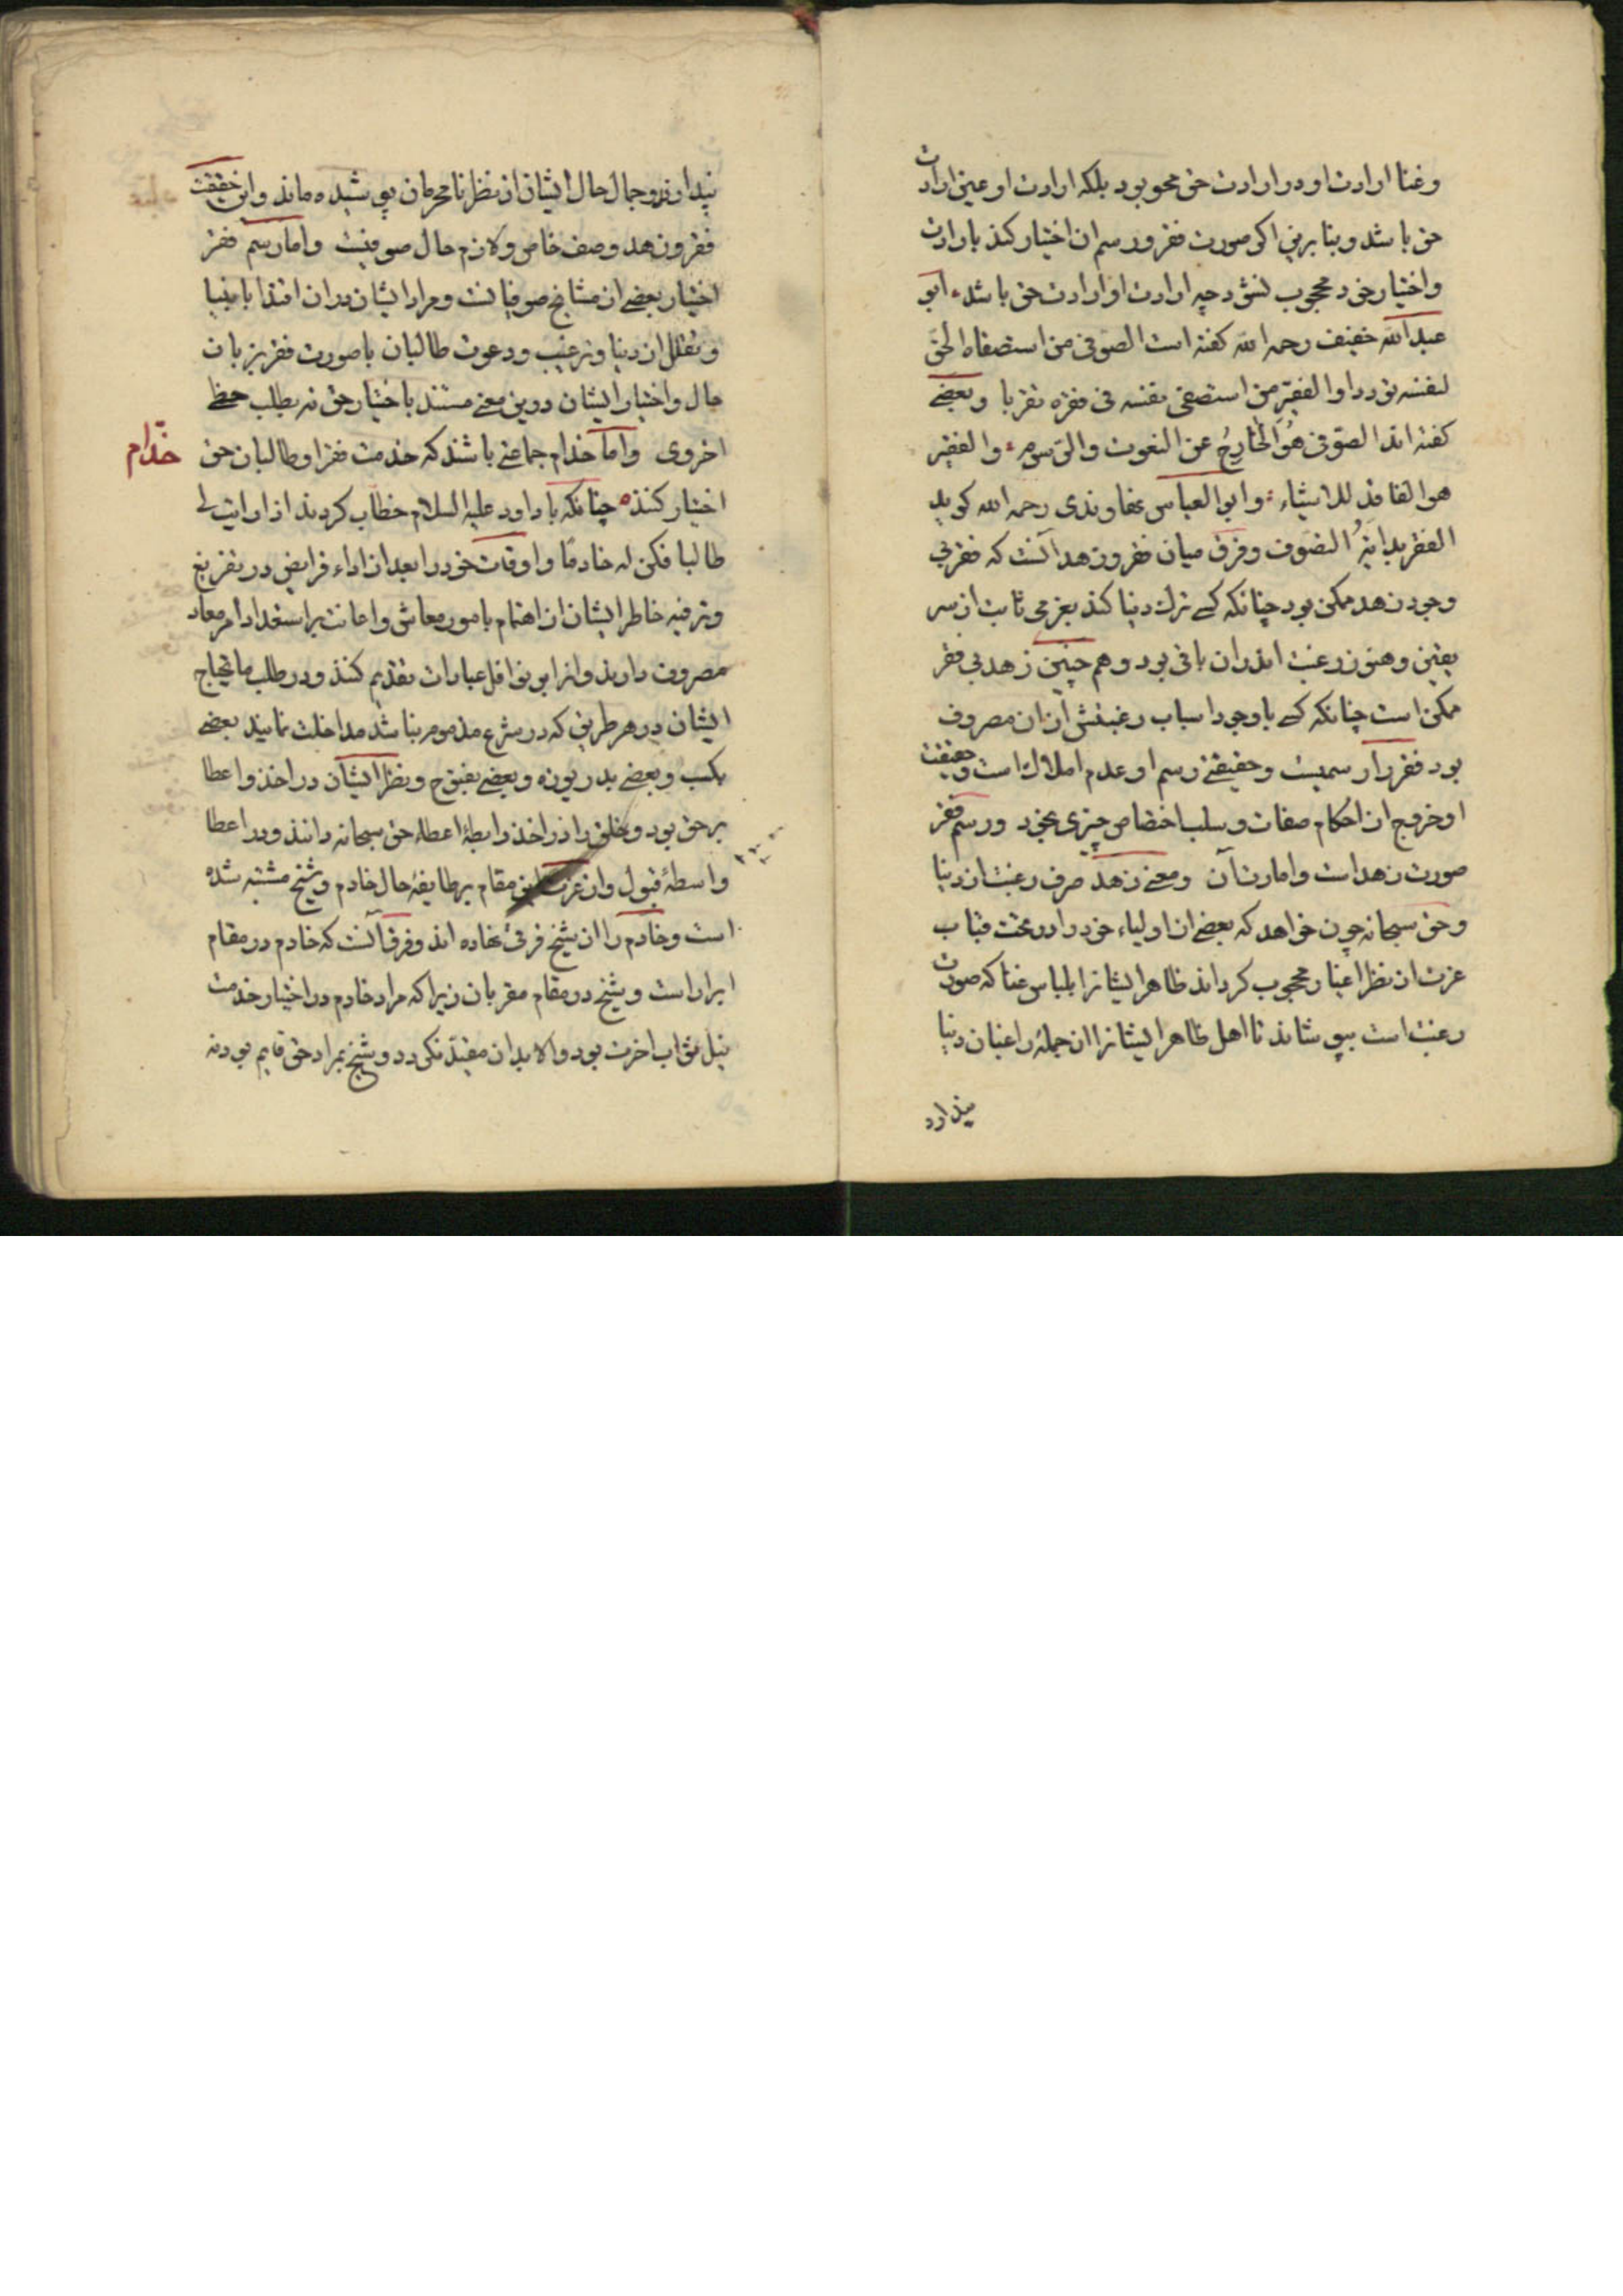 وغنا ارادت او در ارادت حق محو بود بلکه ارادت او عین ارادت
حق باشد و بنا برین اگر صورت فقر و رسم آن اختیار کند بارادت
و اختیار خود محجوب نشود چه ارادت او ارادت حق باشد ابو
عبدالله خفیف رحمه الله گفته است الصوفی من استصفاه الحق
لنفسه توددا و الفقیر من استصفی نفسه فی فقره تقربا و بعضے
گفته اند الصوفی هو الخارج عن النعوت والرسوم والفقیر
هو الفاقد للاشیاء و ابو العباس نهاوندی رحمه الله گوید
الفقر بدایة التصوف و فرق میان فقر و زهد آنست که فقر بی
وجود زهد ممکن بود چنانکه کسے ترک دنیا کند بعزمی ثابت از سر
یقین و هنوز رغبت اندران باقی بود و هم چنین زهد بی فقر
ممکن است چنانکه کسے با وجود اسباب رغبتش از آن مصروف
بود فقر را رسمیست و حقیقتے رسم او عدم املاک است و حقیقت
او خروج از احکام صفات و سلب اختصاص چیزی بخود و رسم فقر
صورت زهد است و امارت آن و معنے زهد صرف رغبت از دنیا
و حق سبحانه چون خواهد که بعضے از اولیاء خود را در تحت قباب
عزت از نظر اغیار محجوب گرداند ظاهر ایشانرا بلباس غنا که صورت
رغبت است بپوشاند تا اهل ظاهر ایشانرا از جمله راغبان دنیا
پندارد
پندارند و جمال حال ایشان از نظر نامحرمان پوشیده ماند و این حقیقت
فقر و زهد وصف خاص و لازم حال صوفیست و اما رسم فقر
اختیار بعضے از مشایخ صوفیانست و مراد ایشان دران اقتدا بانبیا
و تقلل از دنیا و ترغیب و دعوت طالبان با صورت فقر بزبان
حال و اختیار ایشان درین معنے مستند باختیار حق نه بطلب حظے
اخروی و اما خدام جماعتے باشند که خدمت فقرا و طالبان حق
خدّام
اختیار کنند چنانکه با داود علیه السلام خطاب کردند اذا رایت لے
طالبا فکن له خادمًا و اوقات خود را بعد از اداء فرایض در تفریغ
و ترفیه خاطر ایشان از اهتمام بامور معاش و اعانت بر استعداد امر معاد
مصروف دارند و آنرا بر نوافل عبادات تقدیم کنند و در طلب مایحتاج
ایشان در هر طریق که در شرع مذموم نباشد مداخلت نمایند بعضے
بکسب و بعضے بدریوزه و بعضے بفتوح و نظر ایشان در اخذ و اعطا
بر حق بود و خلق را در اخذ رابطهٔ اعطاء حق سبحانه دانند و در اعطا
واسطهٔ قبول و از عزت این مقام بر طایفهٔ حال خادم و شیخ مشتبه شده
است و خادم را از شیخ فرقی نهاده اند و فرق آنست که خادم در مقام
ابرار است و شیخ در مقام مقربان زیرا که مراد خادم در اختیار خدمت
نیل ثواب اخرت بود و الا بدان مقید نگردد و شیخ بمراد حق قایم بود نه